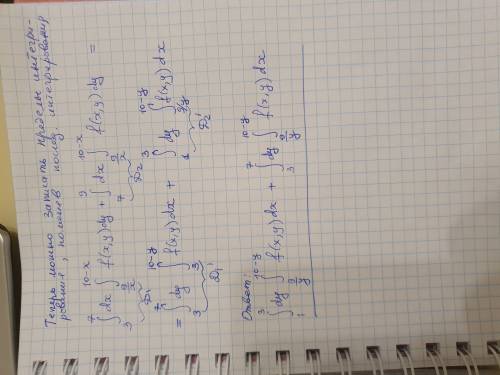 Теперь можно записать пределы интегри-
рования, поменяв поряд. интегрирования
∫₃⁷ dx ∫_{9/x}^{10-x} f(x,y)dy + ∫₇⁹ dx ∫_{9/x}^{10-x} f(x,y)dy =
D₁ D₂
= ∫₃⁷ dy ∫₃^{10-y} f(x,y)dx + ∫₁³ dy ∫_{9/y}^{10-y} f(x,y)dx
D₁' D₂'
Ответ:
∫₁³ dy ∫_{9/y}^{10-y} f(x,y)dx + ∫₃⁷ dy ∫_{9/y}^{10-y} f(x,y)dx